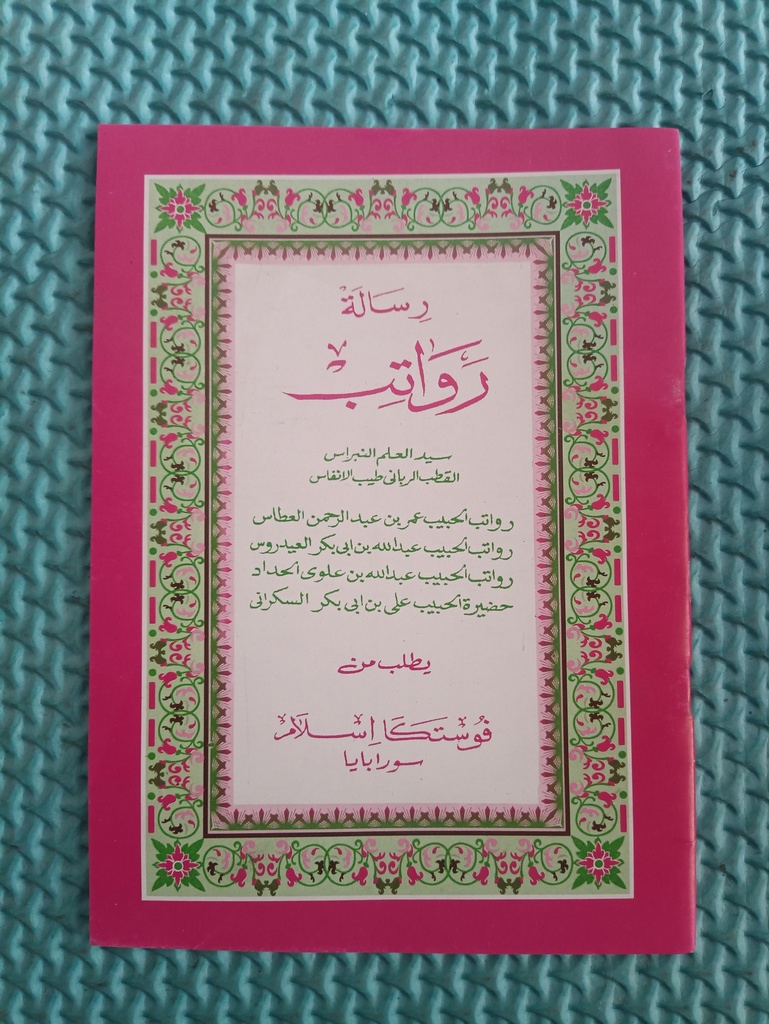 رِسَالَةْ
رَوَاتِبْ
سيد العلم النبراس
القطب الربانى طيب الانفاس
رواتب الحبيب عمر بن عبد الرحمن العطاس
رواتب الحبيب عبد الله بن ابى بكر العيدروس
رواتب الحبيب عبد الله بن علوى الحداد
حضيرة الحبيب على بن ابى بكر السكرانى
يطلب من
فُوْستَكَا إِسْلَامْ
سورابايا